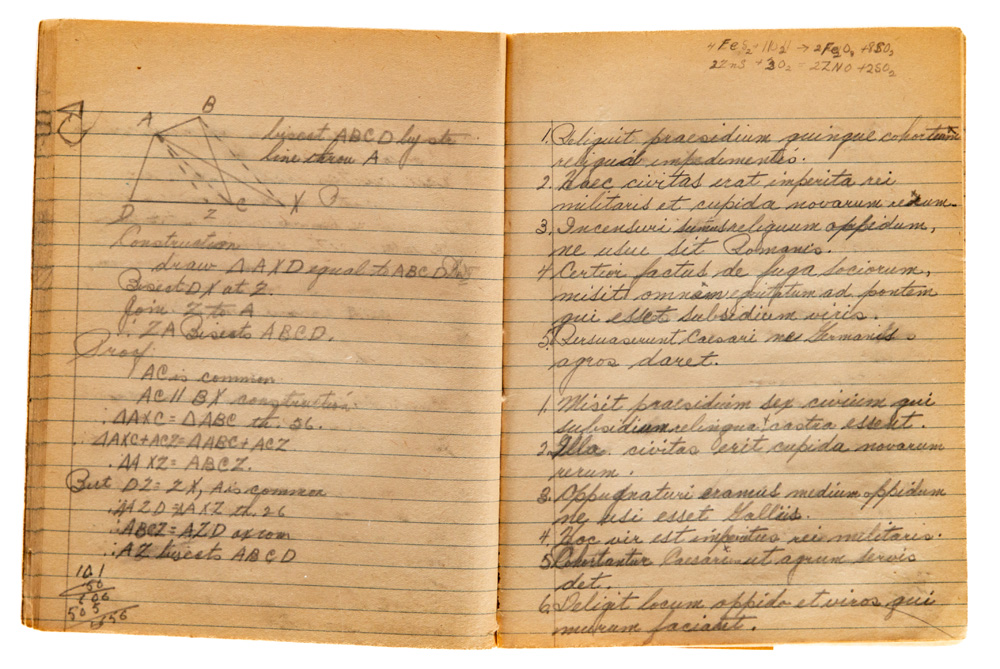 A
B
D
Z
C
X
bisect ABCD by str
line throu A
Construction
draw △AXD equal to ABCD
Bisect DX at Z.
Join Z to A
∴ ZA Bisects ABCD.
Proof.
AC is common
AC || BX construction
∴ △AXC = △ABC th. 26.
△AXC + ACZ = △ABC + ACZ
∴ △AXZ = ABCZ.
But DZ = ZX, A is common
∴ AZD = AXZ th. 26
∴ ABCZ = AZD axiom
∴ AZ bisects ABCD
101
50
505
4FeS2 + 11O2 → 2Fe2O3 + 8SO2
2ZnS + 3O2 = 2ZNO + 2SO2
1. Reliquit praesidium quinque cohortium
reliquis impedimentis.
2. Haec civitas erat imperita rei
militaris et cupida novarum rerum.
3. Incensuri sumus reliquum oppidum,
ne usui sit Romanis.
4. Certior factus de fuga sociorum,
misit omnem equitatum ad pontem
qui esset subsidium viris.
5. Persuaserunt Caesari ne Germanis
agros daret.
1. Misit praesidium sex civium qui
subsidium relinqua castra essent.
2. Illa civitas erit cupida novarum
rerum.
3. Oppugnaturi eramus medium oppidum
ne usi esset Gallis.
4. Hoc vir est imperitus rei militaris.
5. Cohortantur Caesari ut agrum servis
det.
6. Deligit locum oppido et viros qui
murum faciant.